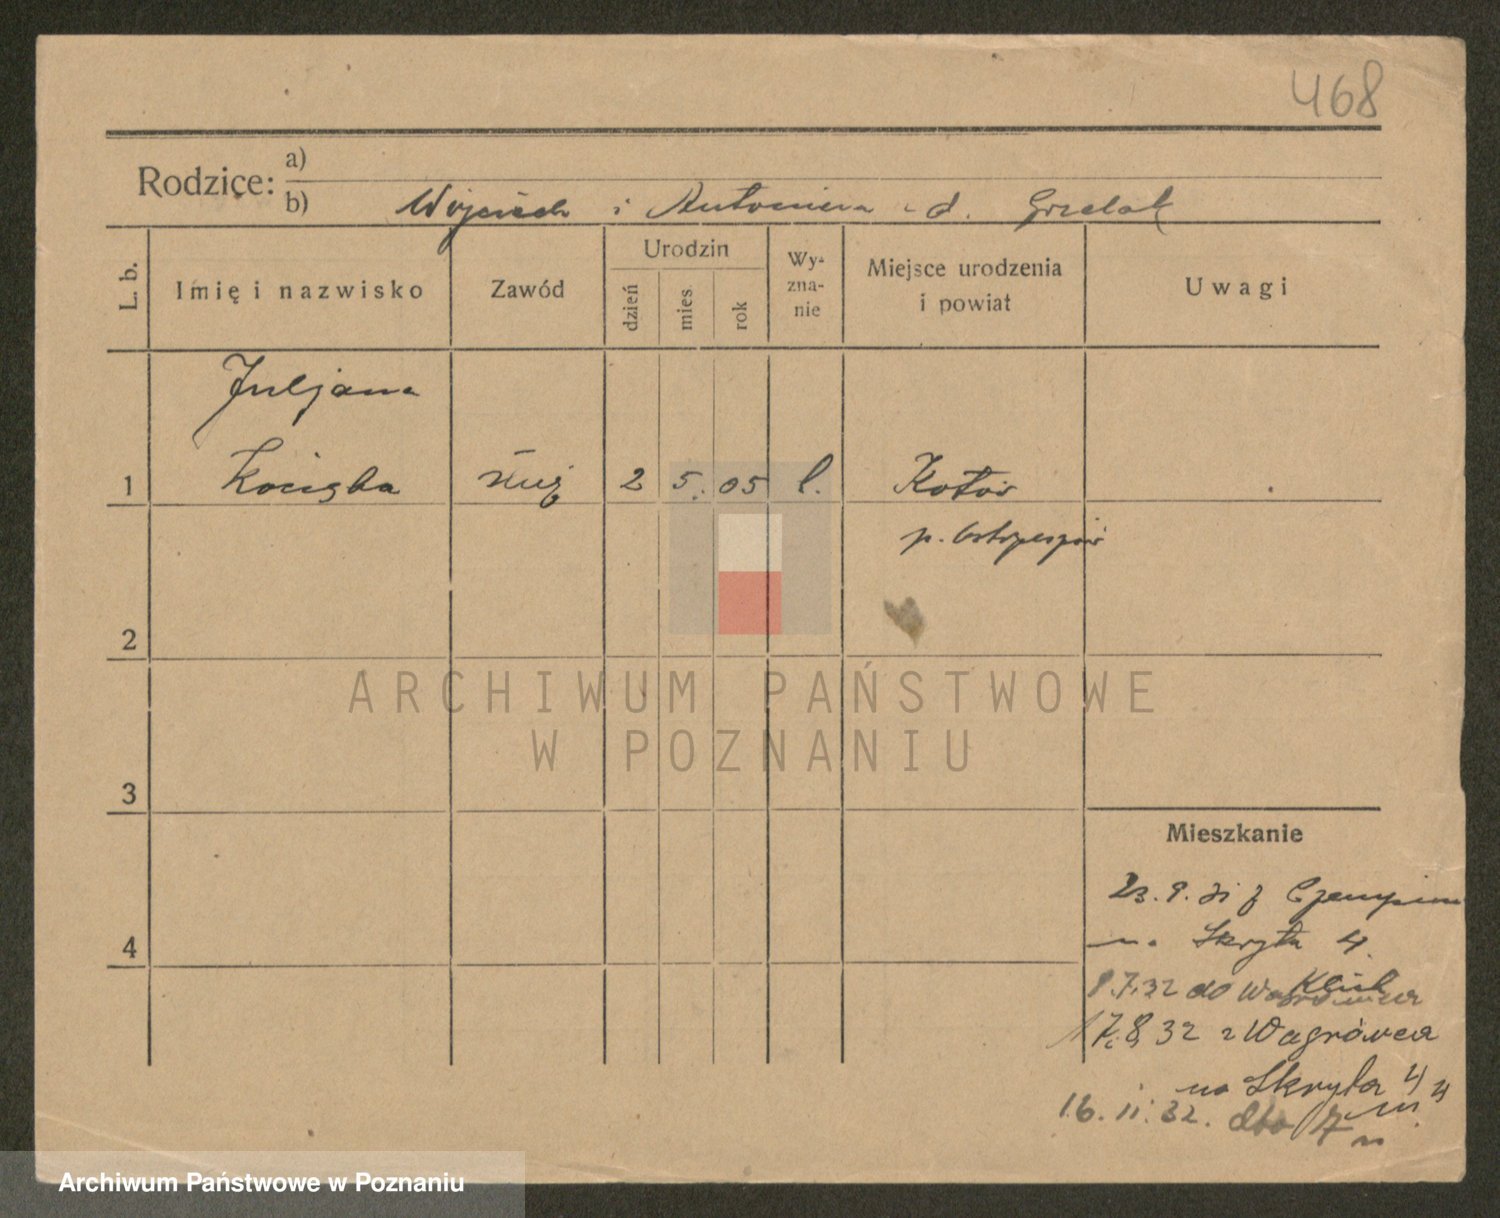 468
Rodzice: a)
b) Wojciech i Antonina d. Grzelak
L. b.
Imię i nazwisko
Zawód
Urodzin
dzień
mies.
rok
Wy-
zna-
nie
Miejsce urodzenia
i powiat
Uwagi
Juljana
1 służ 2 5. 05 k. Kotów
p. Ostrzeszów
2
ARCHIWUM PAŃSTWOWE
W POZNANIU
3
Mieszkanie
23. 9. 31 z Czempinia
na Skryta 4.
4
Klich
.7.32 do Wągrówca
17.8.32 z Wągrówca
na Skryta 4
16. 11. 32.
Archiwum Państwowe w Poznaniu